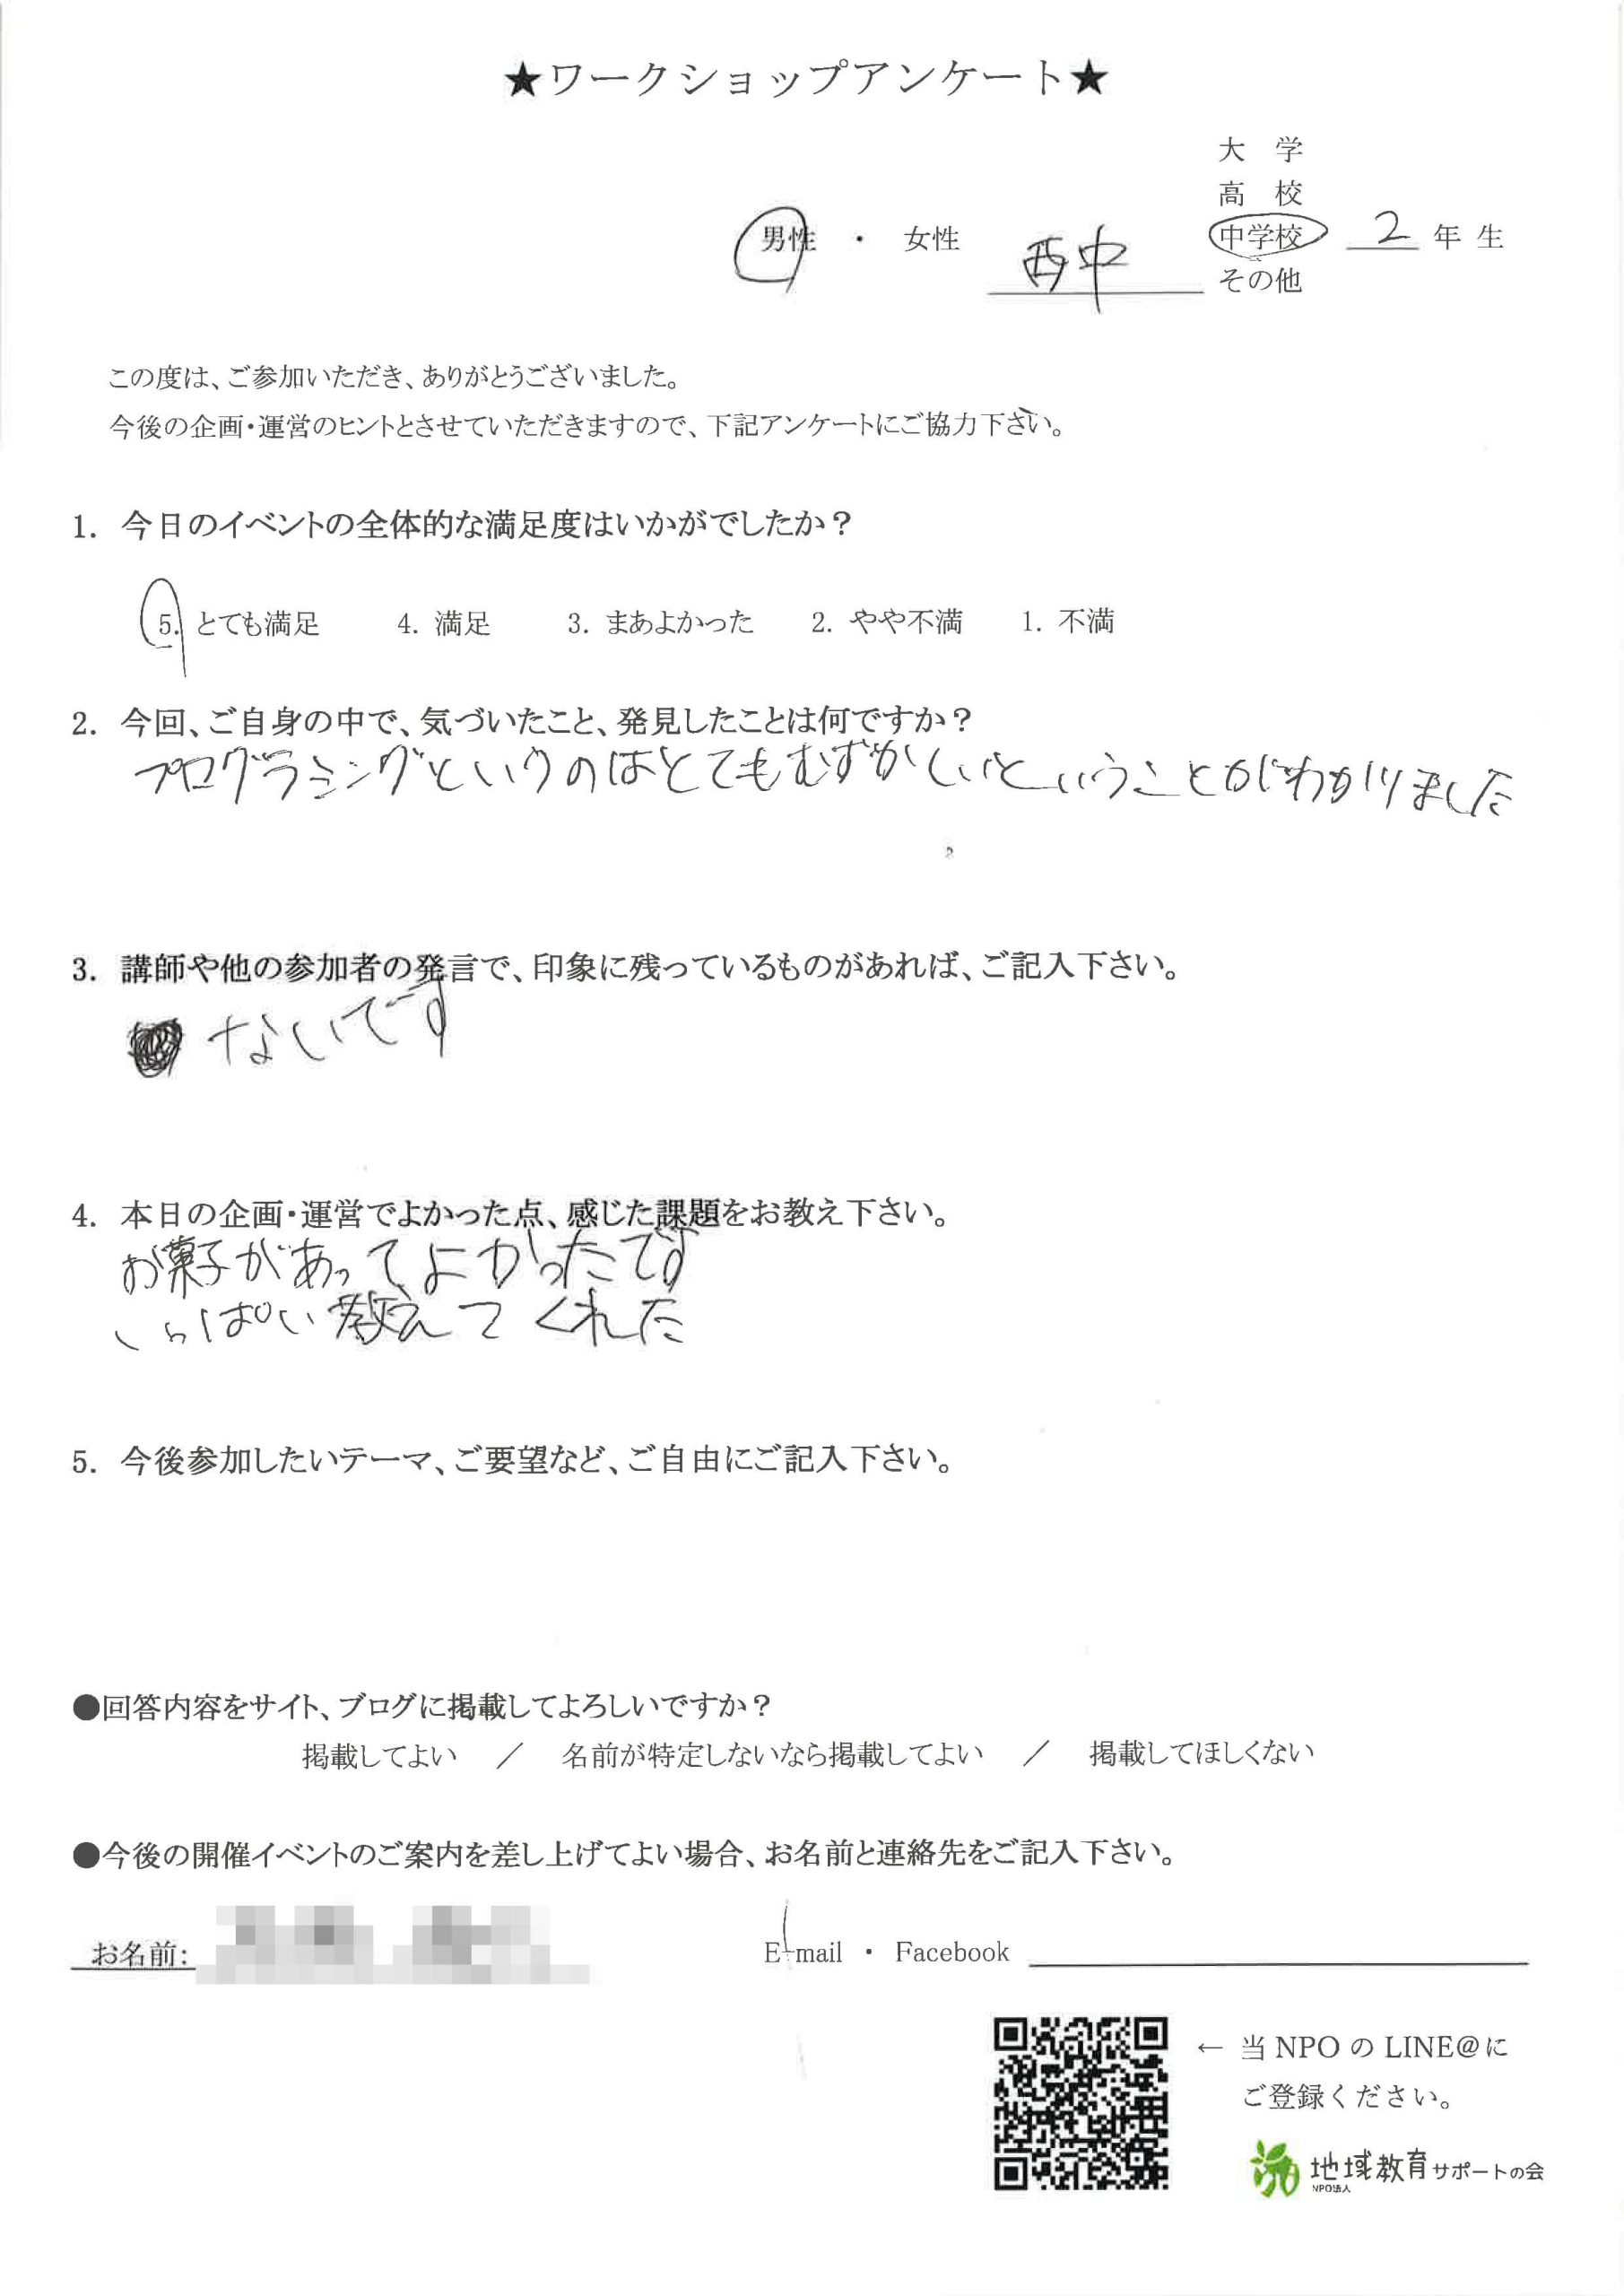 ★ワークショップアンケート★
大 学
高 校
男性 ・ 女性 西中 中学校 2 年 生
その他
この度は、ご参加いただき、ありがとうございました。
今後の企画・運営のヒントとさせていただきますので、下記アンケートにご協力下さい。
1. 今日のイベントの全体的な満足度はいかがでしたか？
5. とても満足 4. 満足 3. まあよかった 2. やや不満 1. 不満
2. 今回、ご自身の中で、気づいたこと、発見したことは何ですか？
プログラミングというのはとてもむずかしいということがわかりました
3. 講師や他の参加者の発言で、印象に残っているものがあれば、ご記入下さい。
ないです
4. 本日の企画・運営でよかった点、感じた課題をお教え下さい。
お菓子があってよかったです
いっぱい教えてくれた
5. 今後参加したいテーマ、ご要望など、ご自由にご記入下さい。
●回答内容をサイト、ブログに掲載してよろしいですか？
掲載してよい ／ 名前が特定しないなら掲載してよい ／ 掲載してほしくない
●今後の開催イベントのご案内を差し上げてよい場合、お名前と連絡先をご記入下さい。
お名前: E-mail ・ Facebook
← 当 NPO の LINE@に
ご登録ください。
地域教育サポートの会
NPO法人